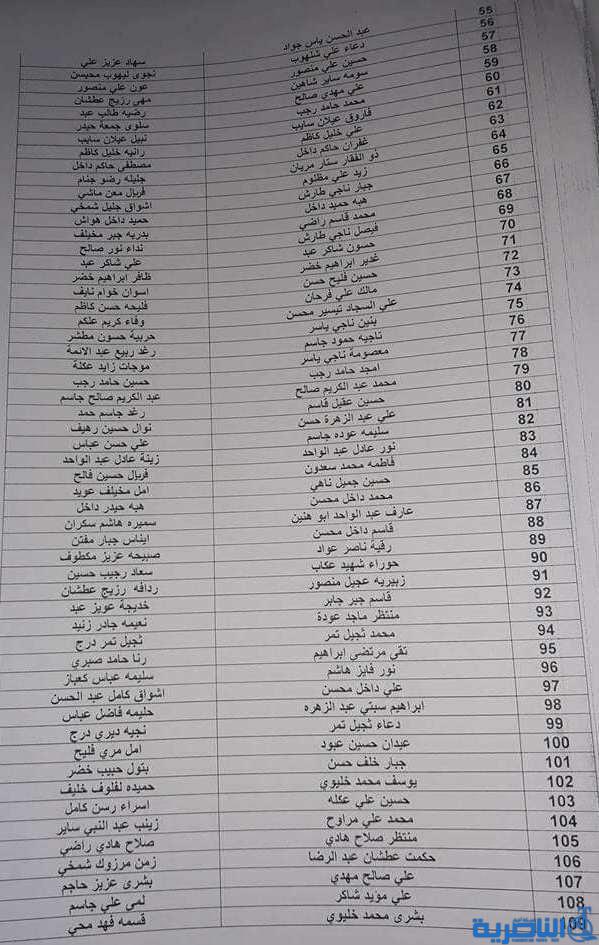 55 عبد الحسن ياس جواد سهاد عزيز علي
56 دعاء علي شلهوب نجوى ليهوب محيسن
57 حسين علي منصور عون علي منصور
58 سومه ساير شاهين مهى رزيج عطشان
59 علي مهدي صالح رضيه طالب عبد
60 محمد حامد رجب سلوى جمعة حيدر
61 فاروق عيلان سايب نبيل عيلان سايب
62 علي خليل كاظم رانيه خليل كاظم
63 غفران حاكم داخل مصطفى حاكم داخل
64 ذو الفقار ستار مريان جليله رضو جنام
65 زيد علي مظلوم فريال معن ماشي
66 جبار ناجي طارش اشواق جليل شمخي
67 هبه حميد داخل حميد داخل هواش
68 محمد قاسم راضي بدريه جبر مخيلف
69 فيصل ناجي طارش نداء نور صالح
70 حسون شاكر عبد علي شاكر عبد
71 غدير ابراهيم خضر ظافر ابراهيم خضر
72 حسين فليح حسن اسوان خوام نايف
73 مالك علي فرحان فليحه حسن كاظم
74 علي السجاد تيسير محسن وفاء كريم علكم
75 بنين ناجي ياسر حربية حسون مطشر
76 ناجيه حمود جاسم رغد ربيع عبد الائمة
77 معصومة ناجي ياسر موجات زايد عكلة
78 امجد حامد رجب حسين حامد رجب
79 محمد عبد الكريم صالح عبد الكريم صالح جاسم
80 حسين عقيل قاسم رغد جاسم حمد
81 علي عبد الزهرة حسن نوال حسين رهيف
82 سليمه عوده جاسم علي حسن عباس
83 نور عادل عبد الواحد زينة عادل عبد الواحد
84 فاطمه محمد سعدون فريال حسين فالح
85 حسين جميل ناهي امل مخيلف عويد
86 محمد داخل محسن هبه حيدر داخل
87 عارف عبد الواحد ابو هنين سميره هاشم سكران
88 قاسم داخل محسن ايناس جبار مفتن
89 رقية ناصر عواد صبيحه عزيز مكطوف
90 حوراء شهيد عكاب سعاد رجيب حسين
91 زبيريه عجيل منصور ردافه رزيج عطشان
92 قاسم جبر جابر خديجة عويز عبد
93 منتظر ماجد عودة نعيمه جادر زنيد
94 محمد ثجيل تمر ثجيل تمر درج
95 تقى مرتضى ابراهيم رنا حامد صبري
96 نور فايز هاشم سليمه عباس كعباز
97 علي داخل محسن اشواق كامل عبد الحسن
98 ابراهيم سبتي عبد الزهره حليمه فاضل عباس
99 دعاء ثجيل تمر نجيه ديري درج
100 عيدان حسين عبود امل مري فليح
101 جبار خلف حسن بتول حبيب خضر
102 يوسف محمد خليوي حميده لفلوف خليف
103 حسين علي عكله اسراء رسن كامل
104 محمد علي مراوح زينب عبد النبي ساير
105 منتظر صلاح هادي صلاح هادي راضي
106 حكمت عطشان عبد الرضا زمن مرزوك شمخي
107 علي صالح مهدي بشرى عزيز حاجم
108 علي مؤيد شاكر لمى علي جاسم
109 بشرى محمد خليوي قسمه فهد محي
الناصرية